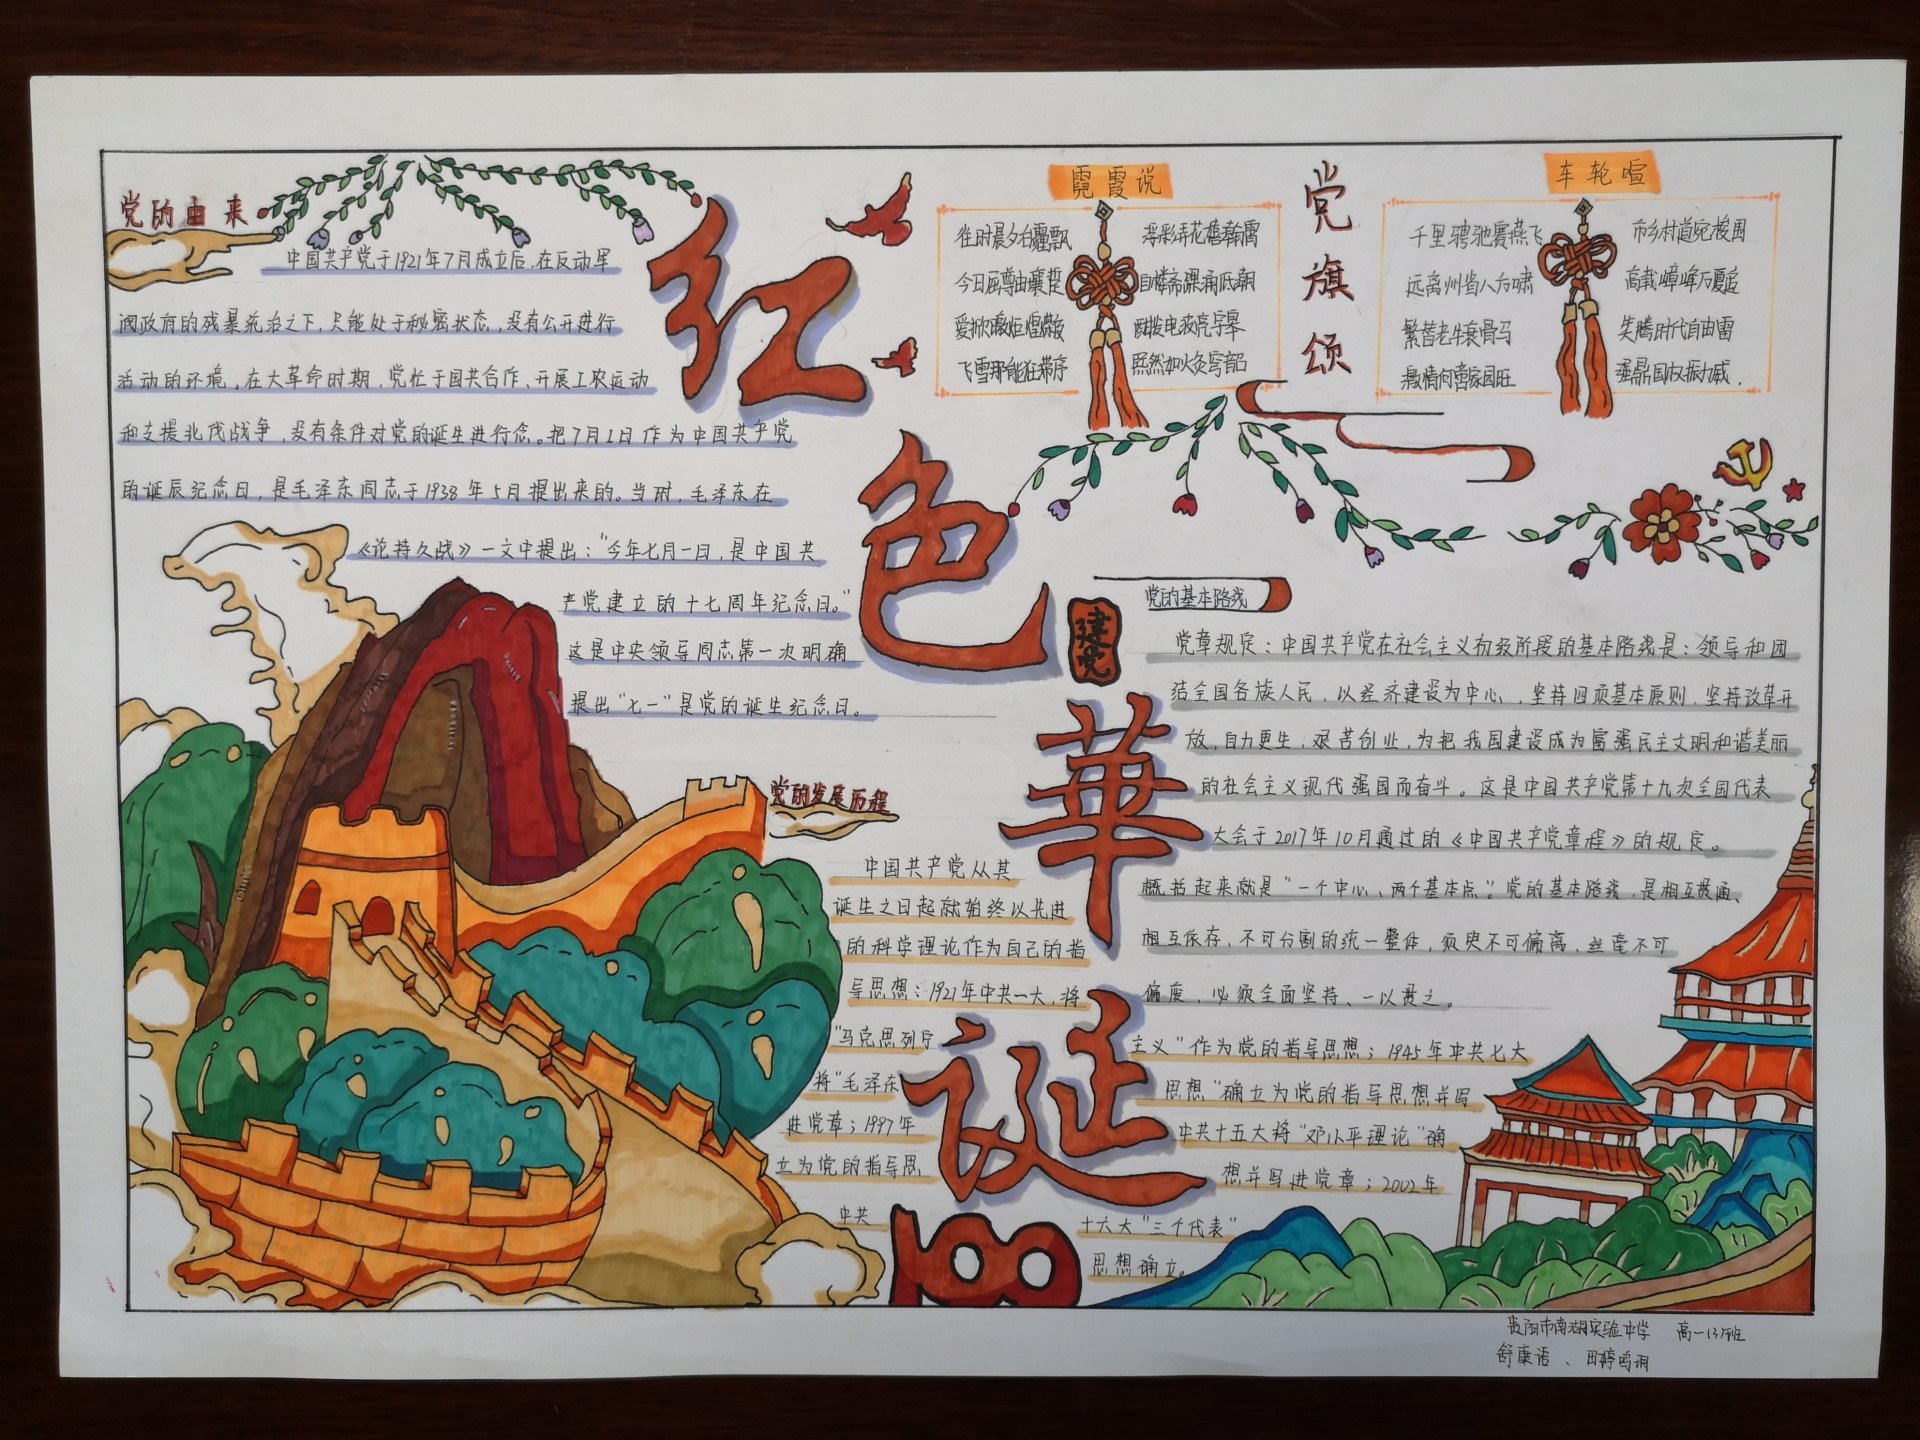 党的由来
中国共产党于1921年7月成立后，在反动军
阀政府的残暴统治之下，只能处于秘密状态，没有公开进行
活动的环境。在大革命时期，党忙于国共合作、开展工农运动
和支援北伐战争，没有条件对党的诞生进行纪念。把7月1日作为中国共产党
的诞辰纪念日，是毛泽东同志于1938年5月提出来的。当时，毛泽东在
《论持久战》一文中提出："今年七月一日，是中国共
产党建立的十七周年纪念日。"
这是中央领导同志第一次明确
提出"七一"是党的诞生纪念日。
红
色
華
诞
100
建党
党旗颂
霓霞说
往时晨夕右飘
今日屈尊由壤
爱欣
飞雪那能往常序
弄花
电
如火灸穹韶
车轮喧
千里骋驰赛燕飞
远离州省八方啸
繁替老牛衰骨马
激情何需家园旺
市乡村道宛梭围
高载嶂峰万厦追
笑腾时代自由雷
鼎国权振威.
党的基本路线
党章规定：中国共产党在社会主义初级阶段的基本路线是：领导和团
结全国各族人民，以经济建设为中心，坚持四项基本原则，坚持改革开
放，自力更生，艰苦创业，为把我国建设成为富强民主文明和谐美丽
的社会主义现代强国而奋斗。这是中国共产党第十九次全国代表
大会于2017年10月通过的《中国共产党章程》的规定。
概括起来就是"一个中心、两个基本点"。党的基本路线，是相互贯通、
相互依存，不可分割的统一整体，须臾不可偏离、丝毫不可
偏废，必须全面坚持、一以贯之。
党的发展历程
中国共产党从其
诞生之日起就始终以先进
的科学理论作为自己的指
导思想：1921年中共一大，将
"马克思列宁 主义"作为党的指导思想；1945年中共七大
将"毛泽东 思想"确立为党的指导思想并写
进党章；1997年 中共十五大将"邓小平理论"确
立为党的指导思 想并写进党章；2002年
中共 十六大"三个代表"
思想确立。
贵阳市南湖实验中学 高一13班
舒康语、田婷鸣润